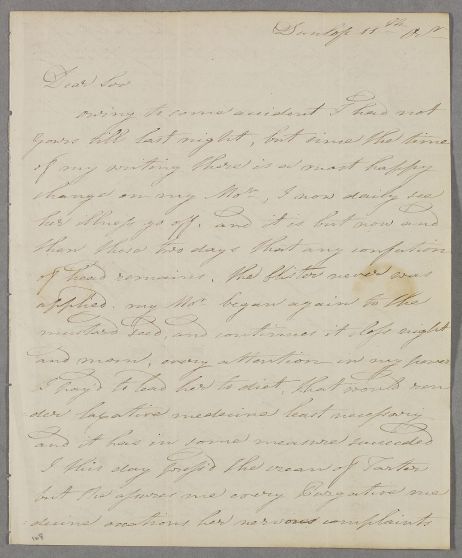 Dunlop 11th
Dear Sir
owing to some accident I had not
yours till last night, but since the time
of my writing there is a most happy
change on my Mor, I now daily see
her illness go off, and it is but now and
then these two days that any confusion
of head remains. the Blister never was
applied. my Mor began again to the
mustard seed, and continues it, night
and morn, every attention in my power
I pay'd to lead her to diet, that would ren
der laxative medicine least necessary
and it has in some measure succeeded
I this day press'd the cream of Tartar
but she assures me every Purgative me
dicine occations her nervous complaints
108